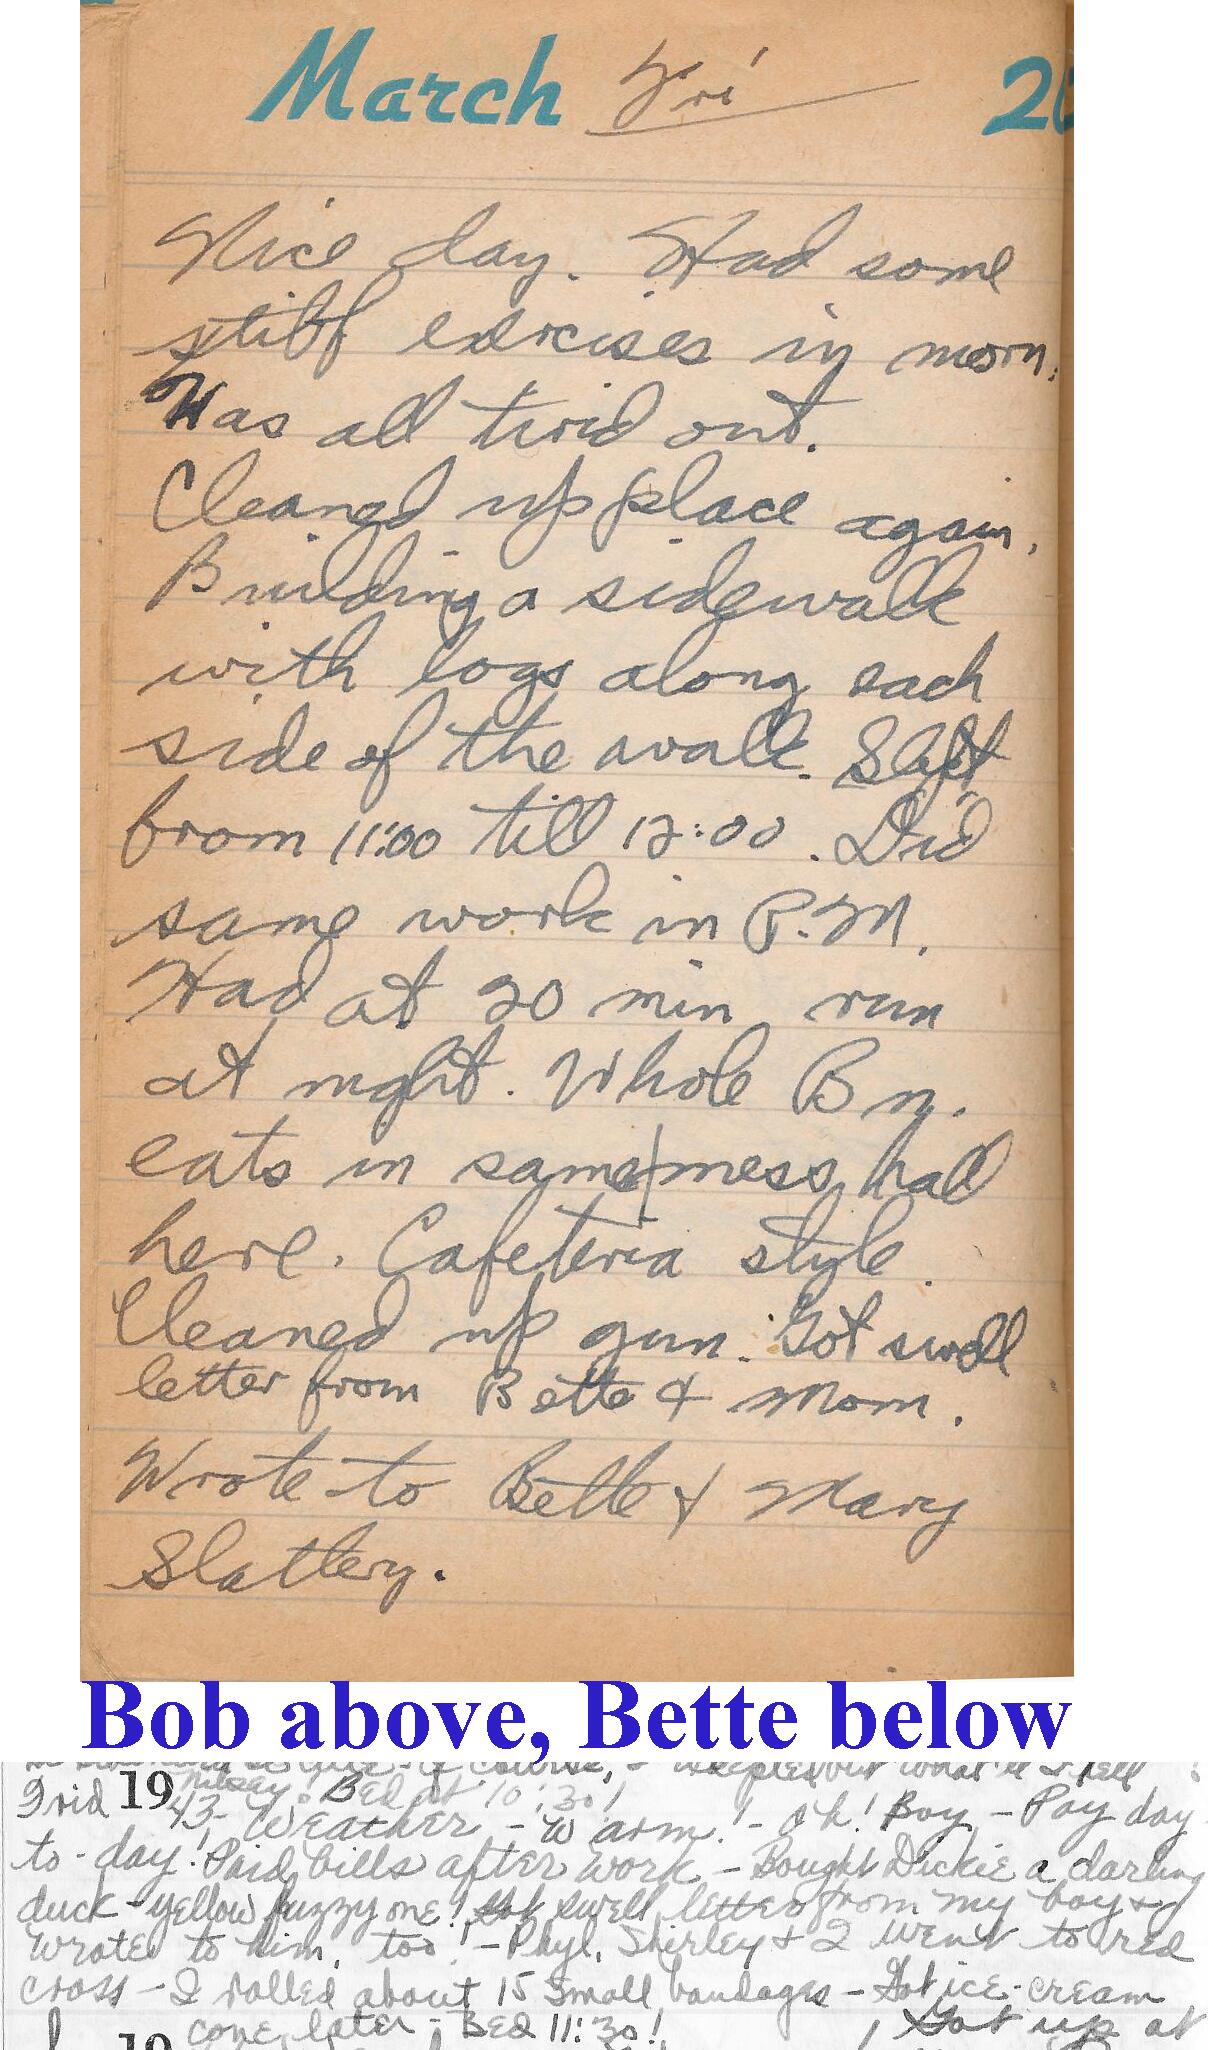 March Fri 20
Nice day. Had some
stiff exercises in morn.
Was all tired out.
Cleaned up place again.
Building a sidewalk
with logs along each
side of the walk. Slept
from 11:00 till 12:00. Did
same work in P.M.
Had at 20 min run
at night. Whole Bn.
eats in same mess hall
here. Cafeteria style.
Cleaned up gun. Got swell
letter from Bette & Mom.
Wrote to Bette & Mary
Slattery.
Bob above, Bette below
of course, what'll I tell
Frid 19 Bed at 10:30!
43 - Weather - Warm! - oh! Boy - Pay day
to-day! Paid bills after work - Bought Dickie a darling
duck - yellow fuzzy one! Got swell letter from my boy &
wrote to him, too! - Phyl, Shirley & I went to red
cross - I rolled about 15 small bandages - Got ice-cream
cone later - Bed 11:30! Got up at
19